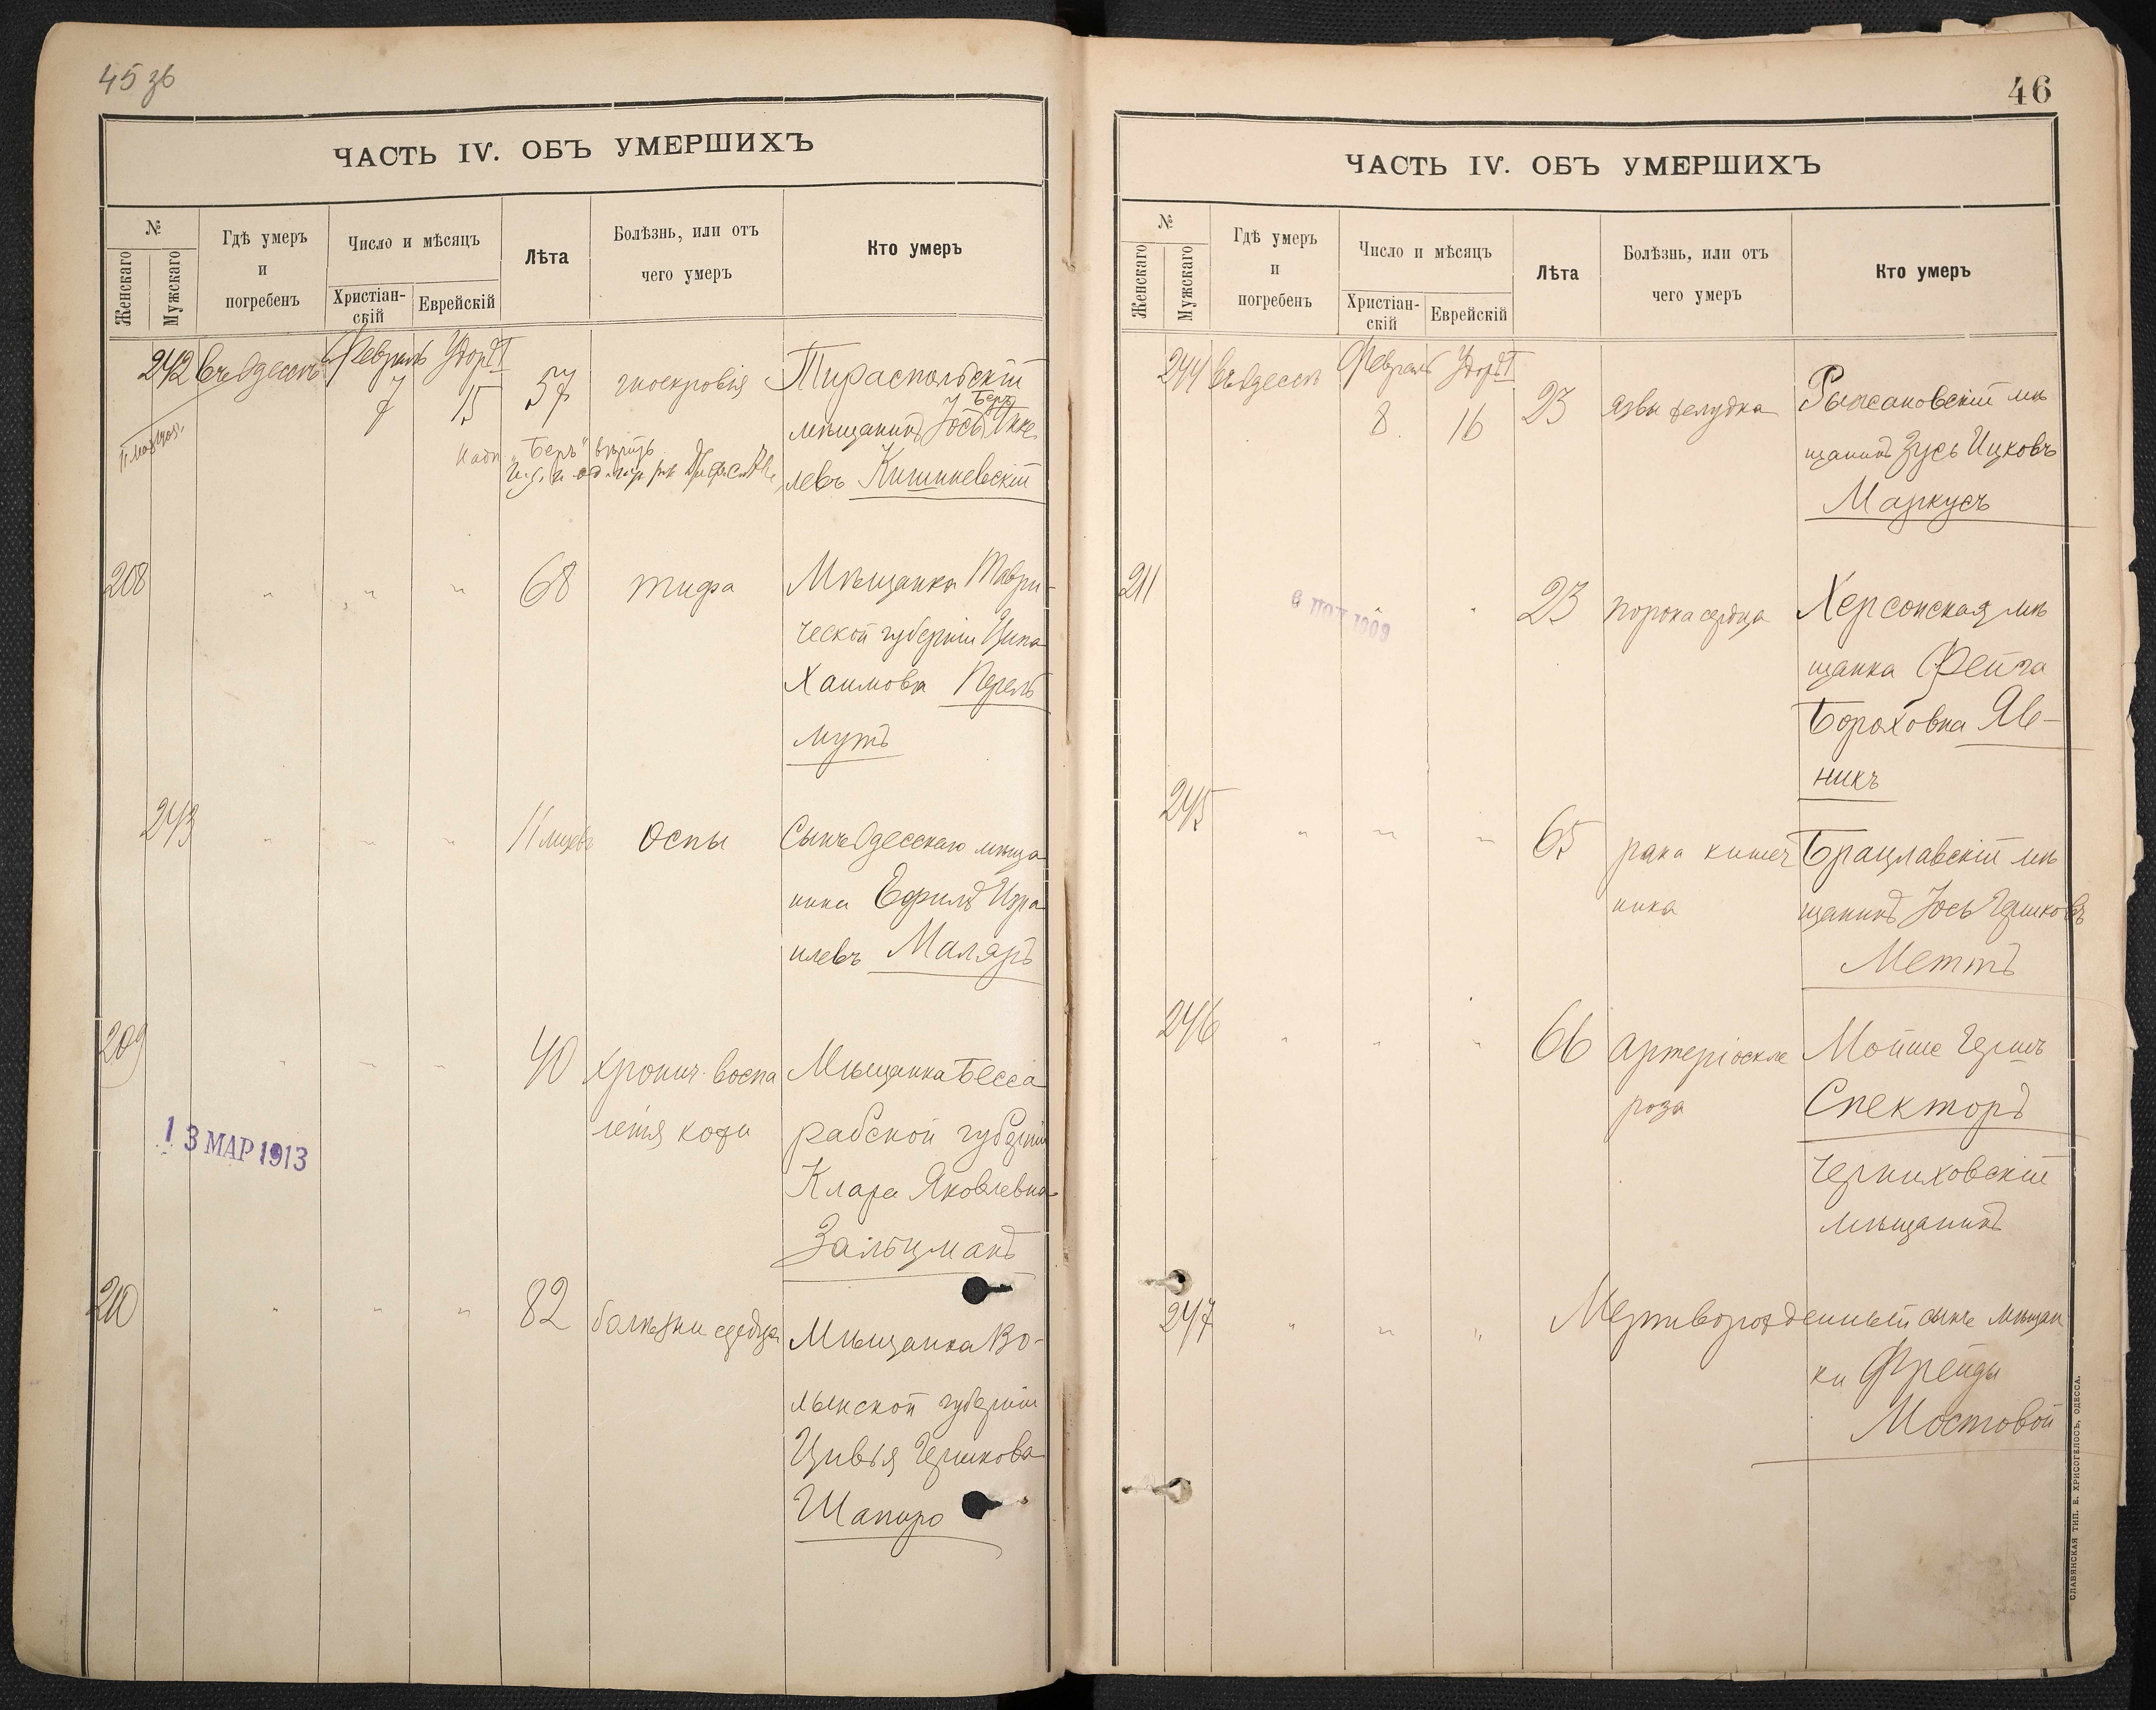 45 зв
ЧАСТЬ IV. ОБЪ УМЕРШИХЪ
№
Женскаго
Мужскаго
Гдѣ умеръ
и
погребенъ
Число и мѣсяцъ
Христіан-
скій
Еврейскій
Лѣта
Болѣзнь, или отъ
чего умеръ
Кто умеръ
242 Въ Одессѣ Февраль Удоръ I
7 15 57 гноекровія Тираспольскій
Беръ
мѣщанинъ Іось
левъ Кишиневскій
Надп. „Беръ" вѣрить
208 " " " 68 тифа Мѣщанка Таври-
ческой губерніи Ципа
Хаимова Перель
мутъ
243 " " " 11 мѣсяц Оспы Сынъ Одесскаго мѣща
нина Ефимъ Изра
илевъ Маляръ
209 " " " 40 хронич. воспа Мѣщанка Бесса
ленія кожи рабской губерніи
Клара Яковлевна
Зальцманъ
13 МАР 1913
210 " " " 82 болѣзни сердца Мѣщанка Во-
лынской губерніи
Цивья Гершкова
Шапиро
46
ЧАСТЬ IV. ОБЪ УМЕРШИХЪ
№
Женскаго
Мужскаго
Гдѣ умеръ
и
погребенъ
Число и мѣсяцъ
Христіан-
скій
Еврейскій
Лѣта
Болѣзнь, или отъ
чего умеръ
Кто умеръ
244 Въ Одессѣ Февраль Удоръ I
8 16 23 язвы желудка Рыжановскій мѣ
щанинъ Зусь Ицковъ
Маркусъ
211 " " 23 порока сердца Херсонская мѣ
1909
щанка Фейга
Бороховна Яв-
никъ
245 " " " 65 рака кишеч Брацлавскій мѣ
ника щанинъ Іось Гершковъ
Меттъ
246 " " " 66 Артеріоскле Мойше Гершъ
роза Спекторъ
Черниховскій
мѣщанинъ
247 " " " Мертворожденный сынъ мѣщан
ки Фрейды
Мостовой
СЛАВЯНСКАЯ ТИП. Е. ХРИСОГЕЛОСЪ, ОДЕССА.